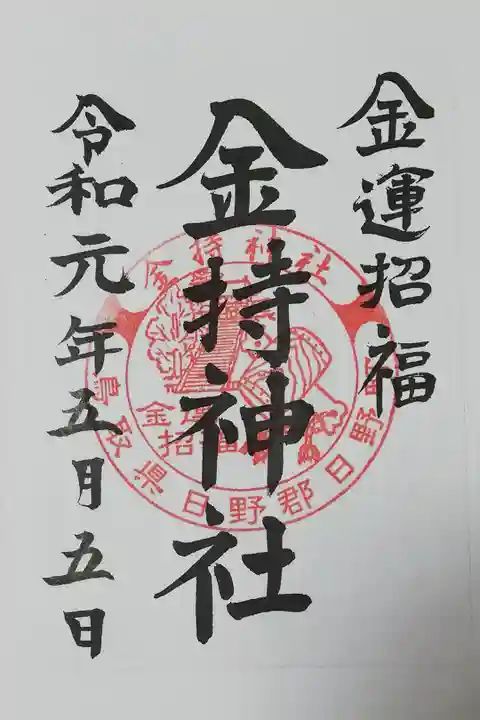 金運招福
金持神社
令和元年五月五日
金持神社
鳥取県日野郡日野
金運
招福